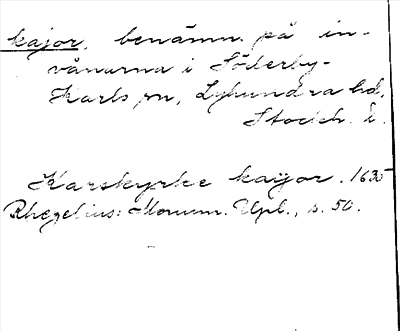 kajor, benämn. på in-
vånarna i Söderby-
Karls sn, Lyhundra hd,
Stockh. l.
Karskyrke kaijor. 1635
Rhezelius: Monum. Upl., s. 50.